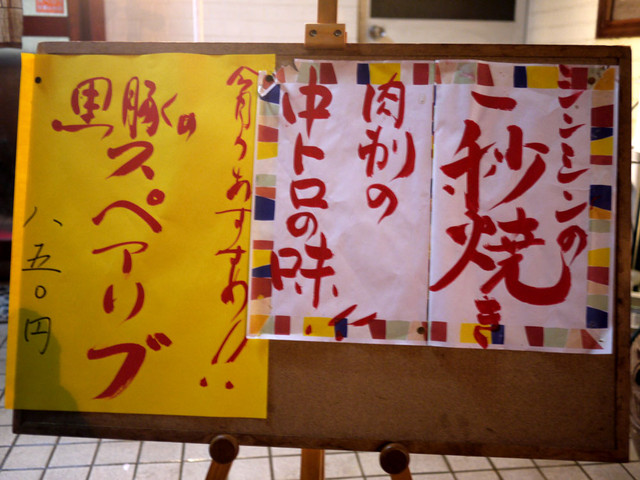 シンシンの
一秒焼き
肉
の
中トロの味!!
今月のおすすめ!!
黒豚の
スペアリブ
八五〇円